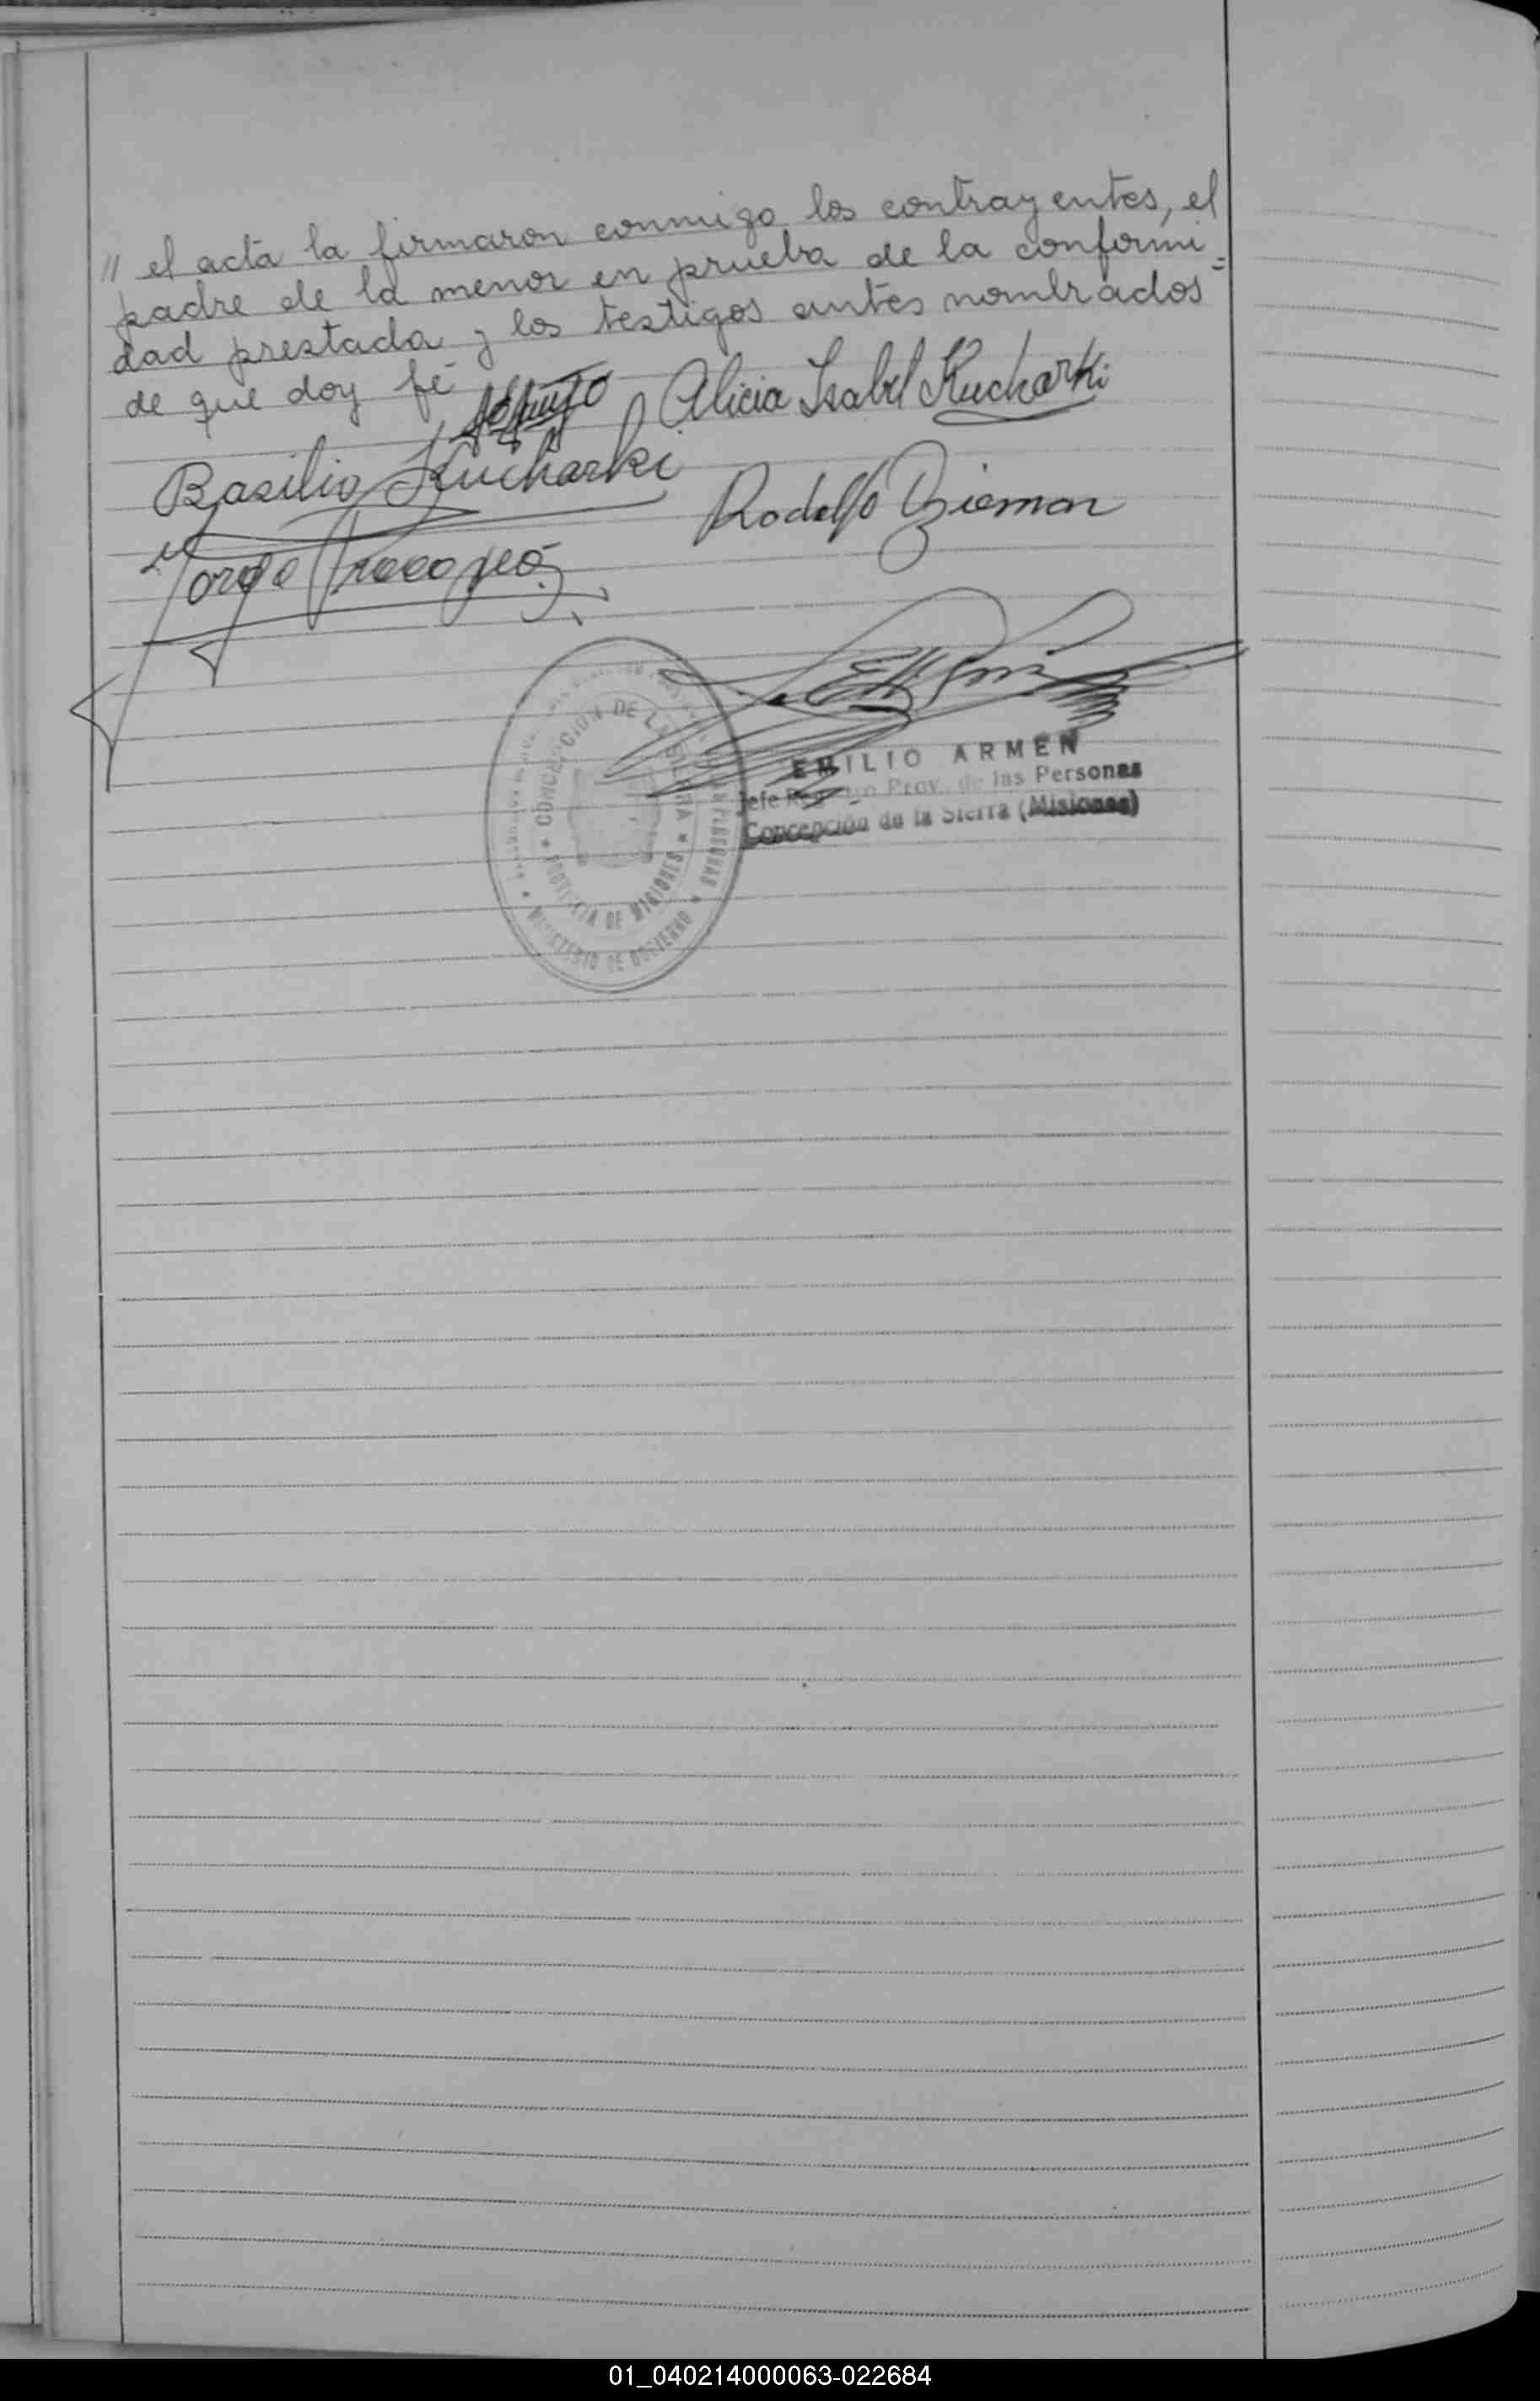 // el acta la firmaron conmigo los contrayentes, el
padre de la menor en prueba de la conformi=
dad prestada y los testigos antes nombrados
de que doy fé
Alicia Isabel Kucharki
Basilio Kucharki
Rodolfo
Jorge
CONCEPCION DE LA SIERRA
PROVINCIA DE MISIONES
LAS PERSONAS
MINISTERIO DE GOBIERNO
EMILIO ARMEN
Jefe Registro Prov. de las Personas
Concepción de la Sierra (Misiones)
01_040214000063-022684